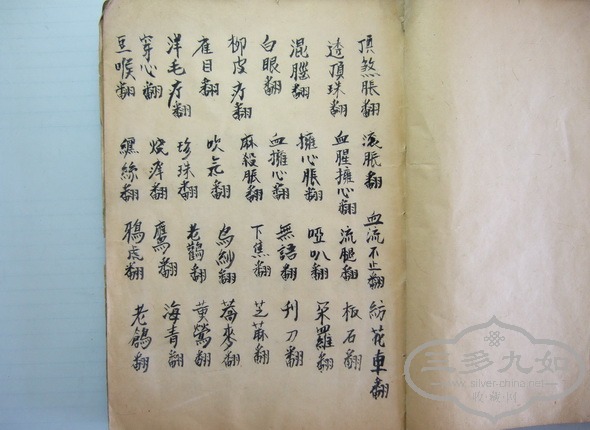 頂煞脹翻 滾脹翻 血流不止翻 紡花車翻
透頂珠翻 血腥擁心翻 流腿翻 板石翻
混腦翻 擁心脹翻 啞叭翻 羅翻
白眼翻 血擁心翻 無語翻 刀翻
柳皮疔翻 麻殺脹翻 下焦翻 芝蔴翻
雀目翻 吹花翻 烏紗翻 蕎麥翻
洋毛疔翻 珍珠翻 老鸛翻 黄鶯翻
穿心翻 燒滓翻 鷹翻 海青翻
豆喉翻 纏絲翻 鴉虎翻 老鴿翻
三多九如
www.silver-china.net
收藏网